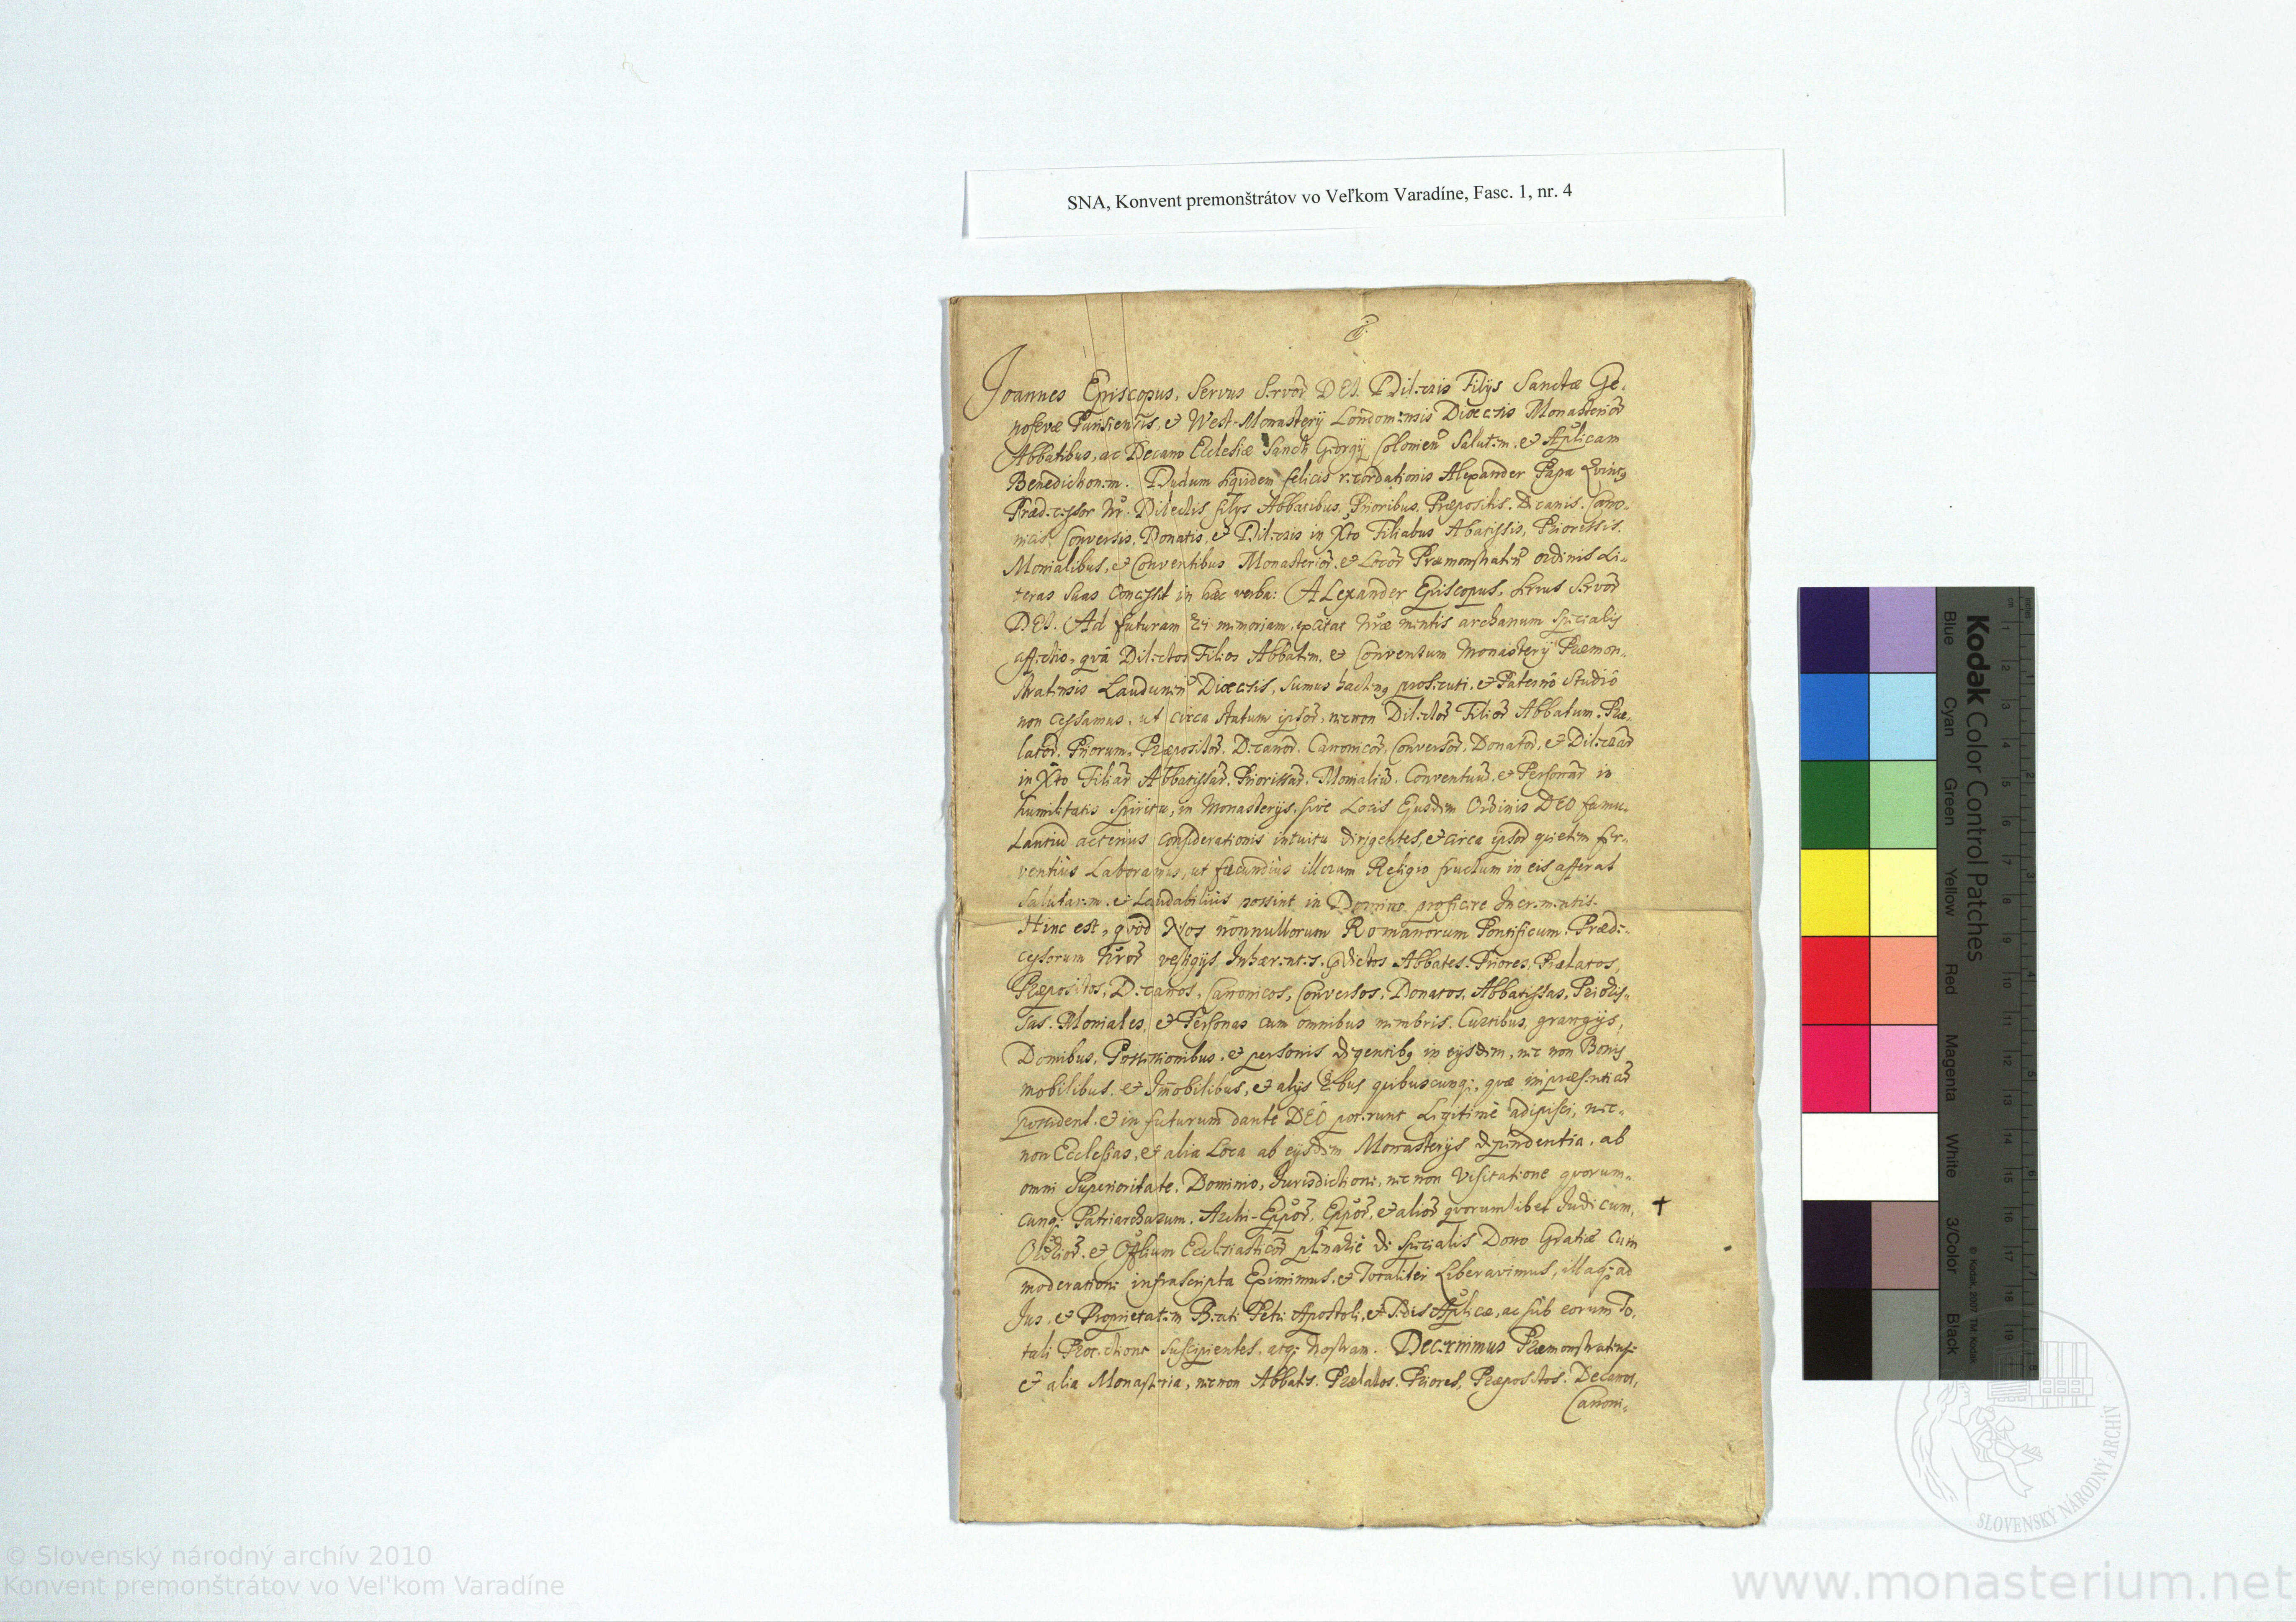 SNA, Konvent premonštrátov vo Veľkom Varadíne, Fasc. 1, nr. 4
Joannes Episcopus, Servus Servor̃ DEI. Dilectis Filÿs Sanctæ Ge-
nofevæ Parisiensis, et West-Monasterÿ Londoniensis Diœcesis Monasterior̃
Abbatibus, ac Decano Ecclesiæ Sancti Georgÿ Colonien̄ Salutem, et Aplicam
Benedictionem. Dudum siqvidem felicis recordationis Alexander Papa Qvintq
Prædecessor Nr̃. Dilectis filÿs Abbatibus, Prioribus, Præpositis, Decanis, Cano-
nicis, Conversis, Donatis, et Dilectis in Xto Filiabus Abatissis, Priorissis,
Monialibus, et Conventibus Monasterior̃, et Locor̃ Præmonstraten̄ ordinis Li-
teras suas Concessit in hæc verba: ALexander Episcopus, Servus Servor̃
DEI. Ad futuram Rei memoriam, excitat Nr̃æ mentis archanum specialis
affectio, qvâ Dilectos Filios Abbatem, et Conventum Monasterÿ Præmon-
stratensis Laudunen̄ Diœcesis, sumus hactenq prosecuti, et Paternô Studiô
non cessamus, ut circa statum ipsor̃, necnon Dilector̃ Filior̃ Abbatum, Præ-
lator̃, Priorum, Præpositor̃, Decanor̃, Canonicor̃, Conversor̃, Donator̃, et Dilectar̃
in Xto Filiar̃ Abbatissar̃, Priorissar̃, Monialiũ, Conventuũ, et Personar̃ in
humilitatis Spiritu, in Monasterÿs, sive Locis Ejusdem Ordinis DEO famu-
Lantiũ acterius considerationis intuitu dirigentes, et circa ipsor̃ quietem fer-
ventius Laboramus, ut fæcundius illorum Religio fructum in eis afferat
Salutarem, et Laudabiliùs possint in Domino proficere Incrementis.
Hinc est, qvòd Nos nonnullorum Romanorum Pontificum, Præde-
cessorum Nr̃or̃ vestigÿs Inhærentes, pdictos Abbates, Priores, Prælatos,
Præpositos, Decanos, Canonicos, Conversos, Donatos, Abbatissas, Prioris-
sas, Moniales, et Personas cum omnibus membris, Curtibus, grangÿs,
Domibus, Possessionibus, et personis degentibq in eÿsdem, nec non Bonis
mobilibus, et Immobilibus, et alÿs Rebus quibuscunq;, qvæ inpræsentiar̃
possident, et in futurum dante DEO poterunt Legitimè adipisci, nec-
non Ecclesias, et alia Loca ab eÿsdem Monasterÿs dependentia, ab
omni Superioritate, Dominio, Jurisdictione, necnon Visitatione qvorum-
cunq; Patriarcharum, Archi-Eppor̃, Eppor̃, et alior̃ qvorumlibet Judicum, †
Ordior̃, et Offlium Ecclesiasticor̃ plenariè de specialis Dono Gratiæ cum
moderatione infrascripta Eximimus, et Totaliter Liberavimus, illaq; ad
Jus, et Proprietatem Beati Petri Apostoli, et Sedis Aplicæ, ac sub eorum To-
tali Protectione suscipientes, atq; Nostram. Decernimus Præmonstratense
et alia Monasteria, necnon Abbates, Prælatos, Priores, Præpositos, Decanos,
Canoni-
Kodak Color Control Patches
Blue
Cyan
Green
Yellow
Red
Magenta
White
3/Color
Black
© Kodak, 2007 TM: Kodak
SLOVENSKÝ NÁRODNÝ ARCHÍV
© Slovenský národný archív 2010
Konvent premonštrátov vo Vel'kom Varadíne
www.monasterium.net